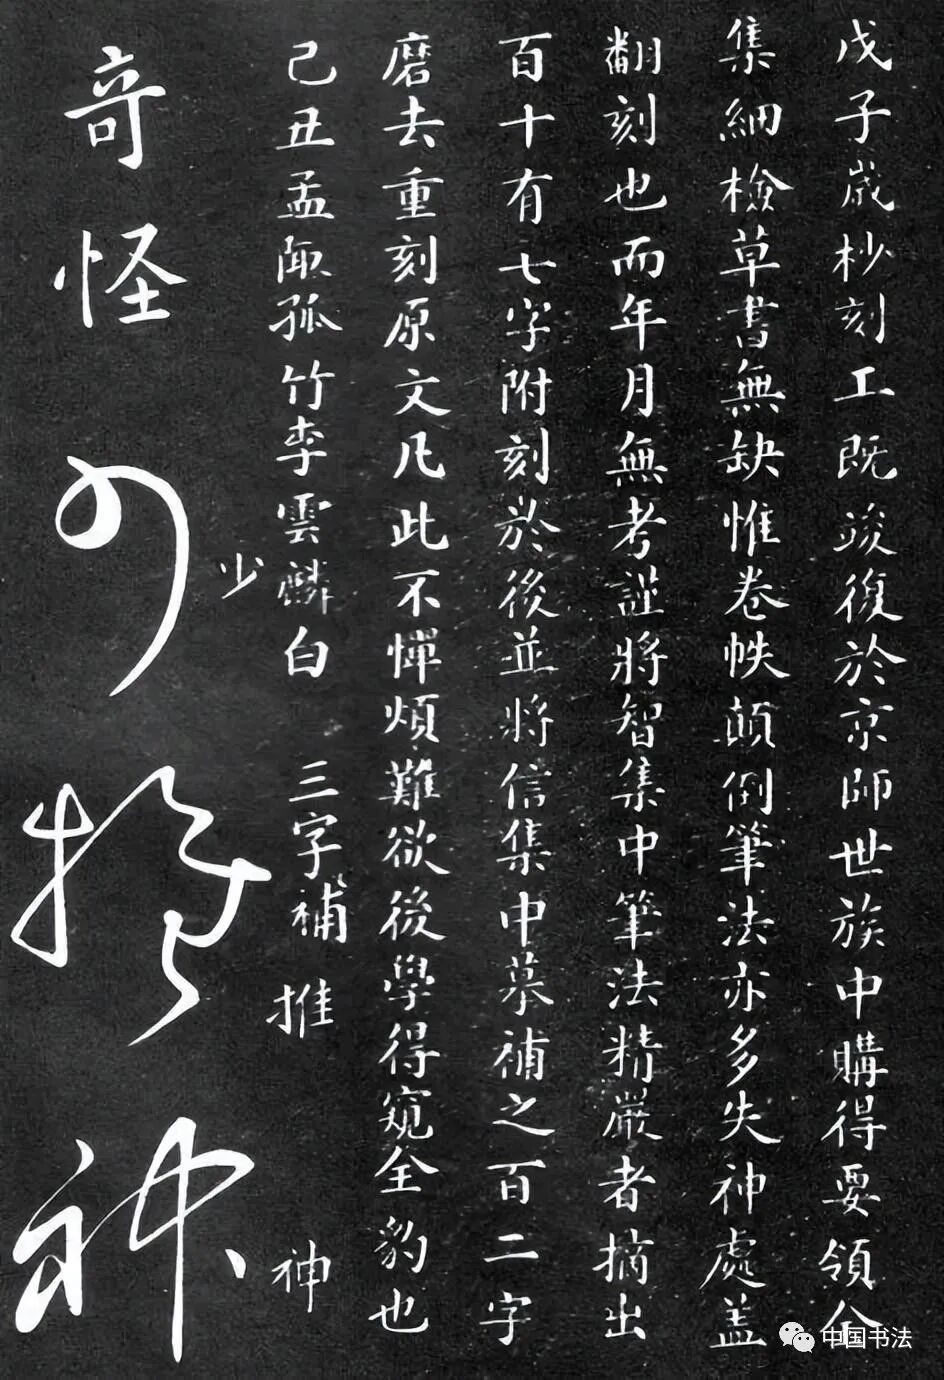 戊子歲杪刻工既竣復於京師世族中購得要領全
集細檢草書無缺惟卷帙顛倒筆法亦多失神處盖
翻刻也而年月無考謹將智集中筆法精嚴者摘出
百十有七字附刻於後並將信集中摹補之百二字
磨去重刻原文凡此不憚煩難欲後學得窺全豹也
己丑孟陬孤竹李雲麟白 三字補
少
推
神
奇怪少推神
中国书法